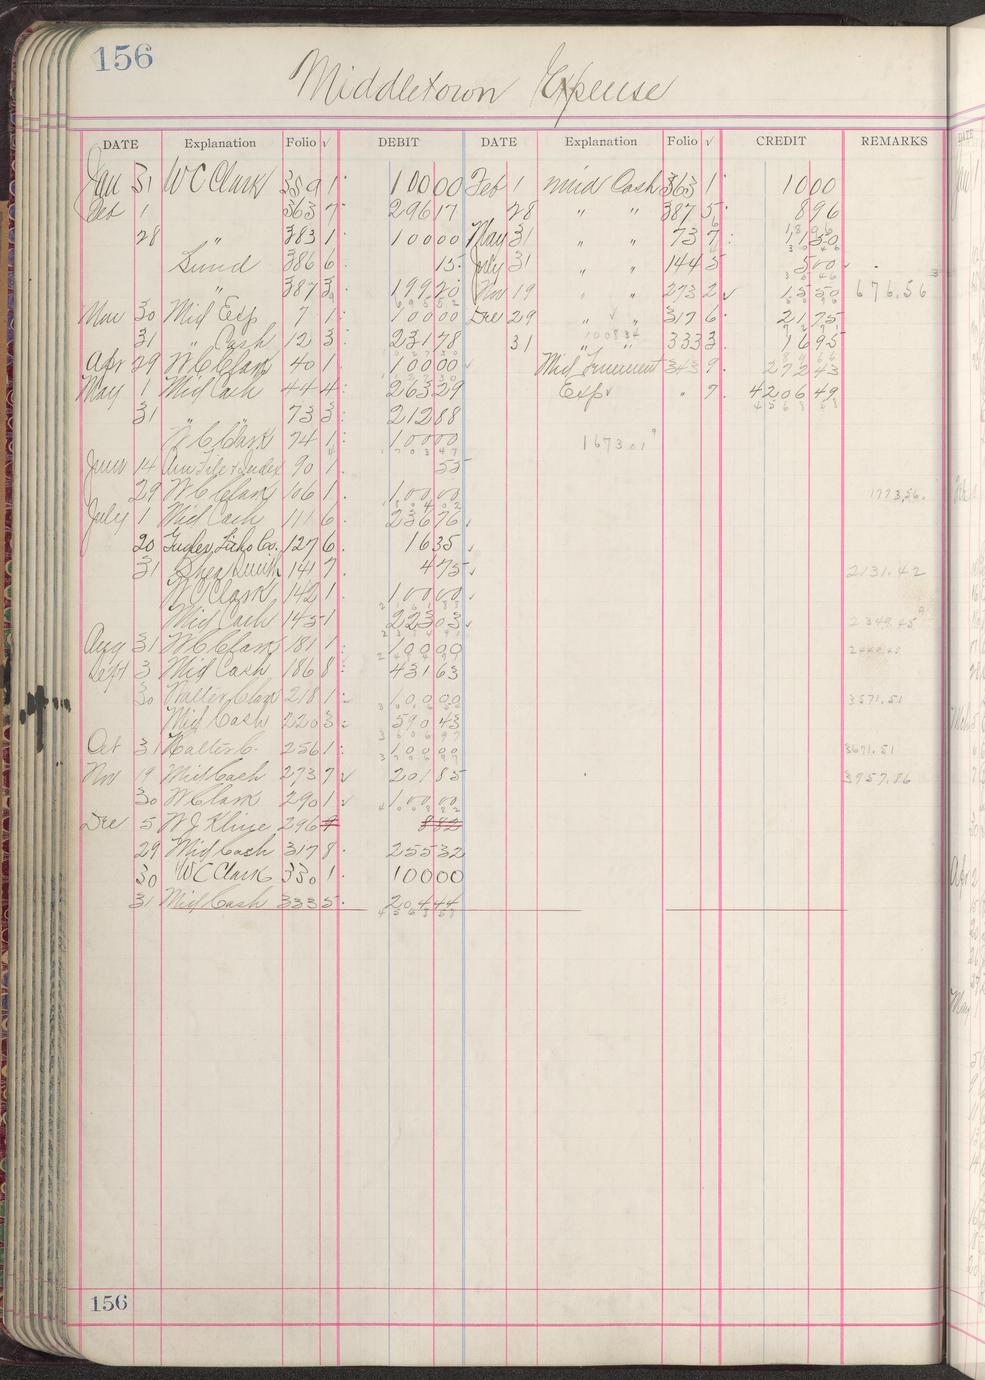 156
Middletown Expense
DATE Explanation Folio √ DEBIT DATE Explanation Folio √ CREDIT REMARKS
Jan 31 W C Clark 359 1 100 00 Feb 1 Mid Cash 363 1 10 00
Feb 1 363 7 296 17 28 " " 387 5 8 96
28 " 383 1 100 00 May 31 " " 73 7 11 50
Sund 386 6 15 July 31 " " 144 5 5 00
" 387 3 199 20 Nov 19 " " 273 2 √ 15 50 676.56
Mar 30 Mid Exp 7 1 100 00 Dec 29 " " 317 6 21 75
31 " Cash 12 3 231 78 31 " " 333 3 16 95
Apr 29 W C Clark 40 1 100 00 Mid Inument 343 9 272 43
May 1 Mid Cash 44 4 263 29 Exp √ 7 4206 49
31 " " 73 3 212 88
W C Clark 74 1 100 00 1673 01
June 14 Am File & Index 90 1 55
29 W C Clark 106 1 100 00 1773,56.
July 1 Mid Cash 111 6 236 76
20 Litho Co. 127 6 16 35
31 Shea Smith 141 7 4 75 2131.42
W C Clark 142 1 100 00
Mid Cash 145 1 223 03 2349.45
Aug 31 W C Clark 181 1 100 00 2449.45
Sept 3 Mid Cash 186 8 431 63
30 Walter Clark 218 1 100 00 3571.51
Mid Cash 220 3 590 43
Oct 31 Walter C. 256 1 100 00 3671.51
Nov 19 Mid Cash 273 7 √ 201 85 3957.86
30 W Clark 290 1 √ 100 00
Dec 5 W J Kline 296 9 8 82
29 Mid Cash 317 8 255 32
30 W C Clark 330 1 100 00
31 Mid Cash 333 5 204 44
4 5 6 3 5 3
156